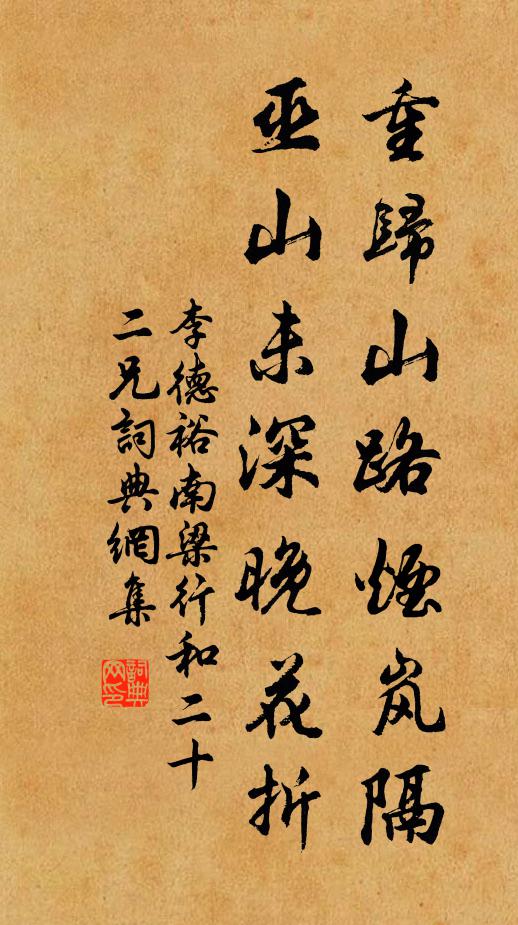 重歸山路煙岚隔
巫山未深晚花折
李德裕南梁行和二十
二兄詞典網集
詞典
网印